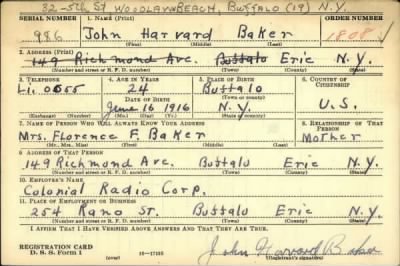 32-5th St WOODLAWN BEACH, BUFFALO (19) N.Y.
SERIAL NUMBER 1. NAME (Print) ORDER NUMBER
986 John Harvard Baker 1808
(First) (Middle) (Last)
2. ADDRESS (Print)
149 Richmond Ave. Buffalo Erie N.Y.
(Number and street or R. F. D. number) (Town) (County) (State)
3. TELEPHONE 4. AGE IN YEARS 5. PLACE OF BIRTH 6. COUNTRY OF CITIZENSHIP
Li. 0655 24 Buffalo
DATE OF BIRTH (Town or county)
June 16 1916 N.Y. U.S.
(Exchange) (Number) (Mo.) (Day) (Yr.) (State or country)
7. NAME OF PERSON WHO WILL ALWAYS KNOW YOUR ADDRESS 8. RELATIONSHIP OF THAT PERSON
Mrs. Florence F. Baker Mother
(Mr., Mrs., Miss) (First) (Middle) (Last)
9. ADDRESS OF THAT PERSON
149 Richmond Ave. Buffalo Erie N.Y.
(Number and street or R. F. D. number) (Town) (County) (State)
10. EMPLOYER'S NAME
Colonial Radio Corp.
11. PLACE OF EMPLOYMENT OR BUSINESS
254 Rano St. Buffalo Erie N.Y.
(Number and street or R. F. D. number) (Town) (County) (State)
I AFFIRM THAT I HAVE VERIFIED ABOVE ANSWERS AND THAT THEY ARE TRUE.
REGISTRATION CARD
D. S. S. Form 1 (over) 16-17105 John Harvard Baker
(Registrant's signature)